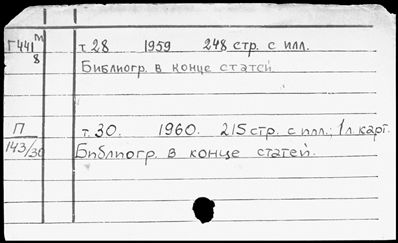 Г441 m т. 28 1959 248 стр. с илл.
8 Библиогр. в конце статей
П т. 30. 1960. 215 стр. с илл.; 1 л. карт.
143/30 Библиогр. в конце статей.